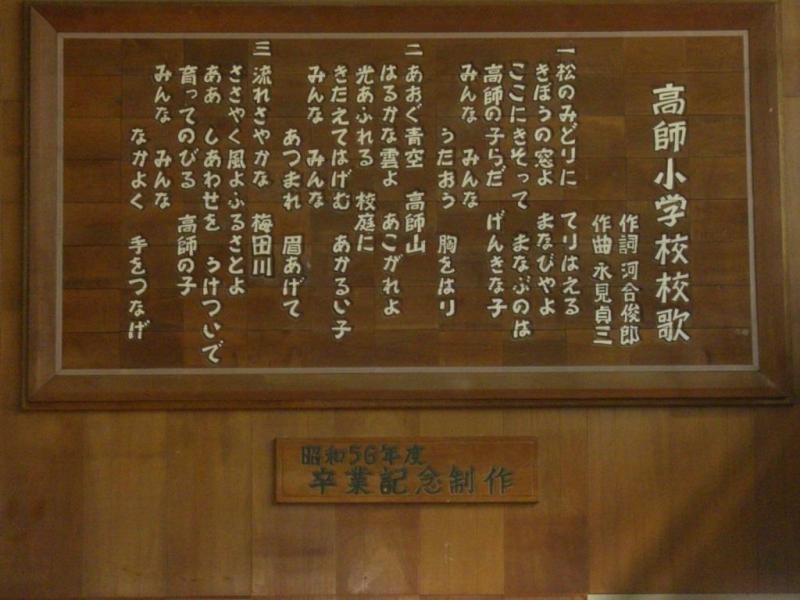 高師小学校校歌
作詞 河合俊郎
作曲 水見貞三
一 松のみどりに てりはえる
きぼうの窓よ まなびやよ
ここにきそって まなぶのは
高師の子らだ げんきな子
みんな みんな
うたおう 胸をはり
二 あおぐ青空 高師山
はるかな雲よ あこがれよ
光あふれる 校庭に
きたえてはげむ あかるい子
みんな みんな
あつまれ 眉あげて
三 流れさやかな 梅田川
ささやく風よふるさとよ
ああ しあわせを うけついで
育ってのびる 高師の子
みんな みんな
なかよく 手をつなげ
昭和56年度
卒業記念制作